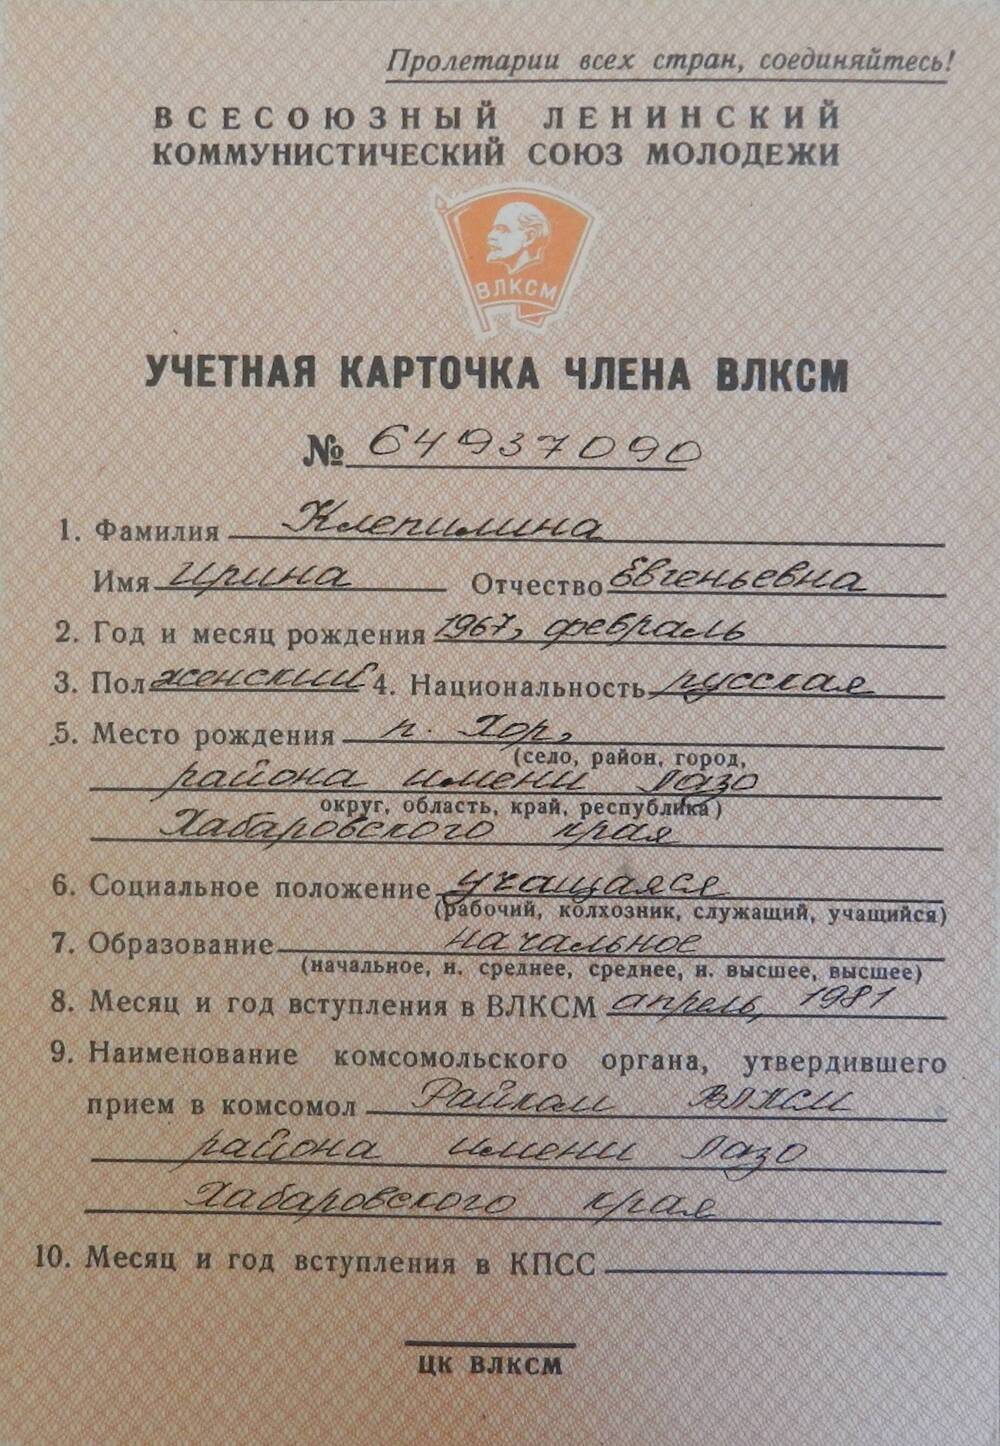 Пролетарии всех стран, соединяйтесь!
ВСЕСОЮЗНЫЙ ЛЕНИНСКИЙ
КОММУНИСТИЧЕСКИЙ СОЮЗ МОЛОДЕЖИ
ВЛКСМ
УЧЕТНАЯ КАРТОЧКА ЧЛЕНА ВЛКСМ
№ 64937090
1. Фамилия Клепилина
Имя Ирина Отчество Евгеньевна
2. Год и месяц рождения 1967, февраль
3. Пол женский 4. Национальность русская
5. Место рождения п. Хор,
(село, район, город,
района имени Лазо
округ, область, край, республика)
Хабаровского края
6. Социальное положение учащаяся
(рабочий, колхозник, служащий, учащийся)
7. Образование начальное
(начальное, н. среднее, среднее, н. высшее, высшее)
8. Месяц и год вступления в ВЛКСМ апрель, 1981
9. Наименование комсомольского органа, утвердившего
прием в комсомол Райком ВЛКСМ
района имени Лазо
Хабаровского края
10. Месяц и год вступления в КПСС
ЦК ВЛКСМ